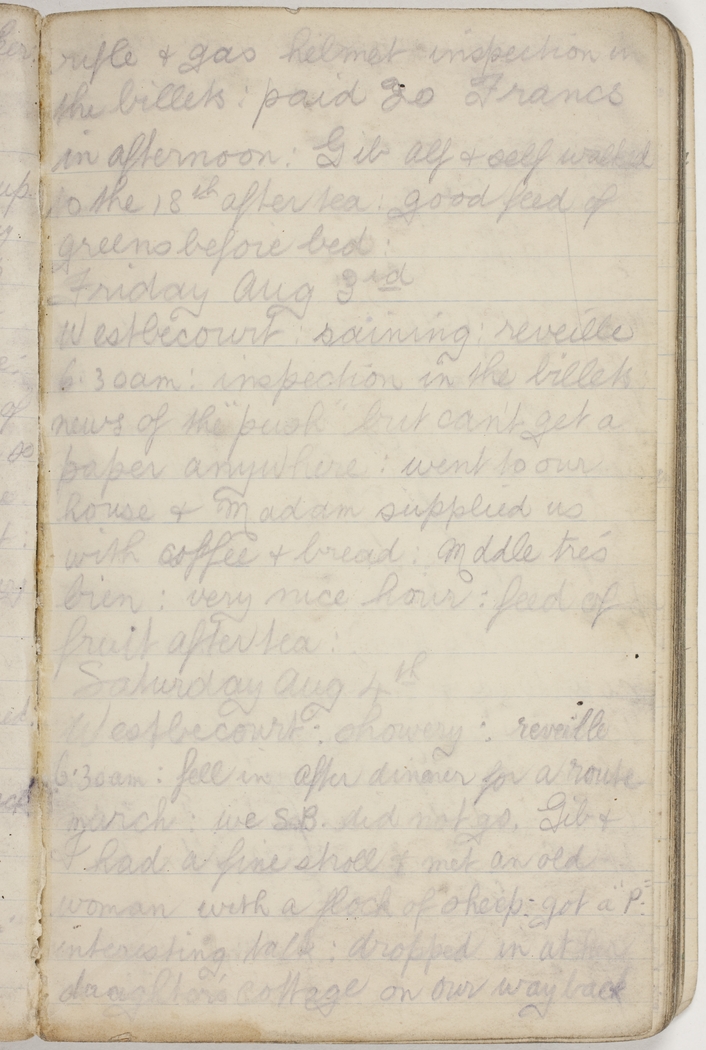 rifle & gas helmet inspection in
the billets: paid 20 Francs
in afternoon: Gib Alf & self walked
to the 18th after tea: good feed of
greens before bed:
Friday Aug 3rd
Westbecourt: raining: reveille
6.30am: inspection in the billets
news of the "push" but can't get a
paper anywhere: went to our
house & Madam supplied us
with coffee & bread: Mdlle trés
bien: very nice hour: feed of
fruit after tea:
Saturday Aug 4th
Westbecourt: showery: reveille
6.30am: fell in after dinner for a route
march: we S.B. did not go. Gib &
I had a fine stroll & met an old
woman with a flock of sheep: got a "P."
interesting talk: dropped in at her
daughter's cottage on our way back